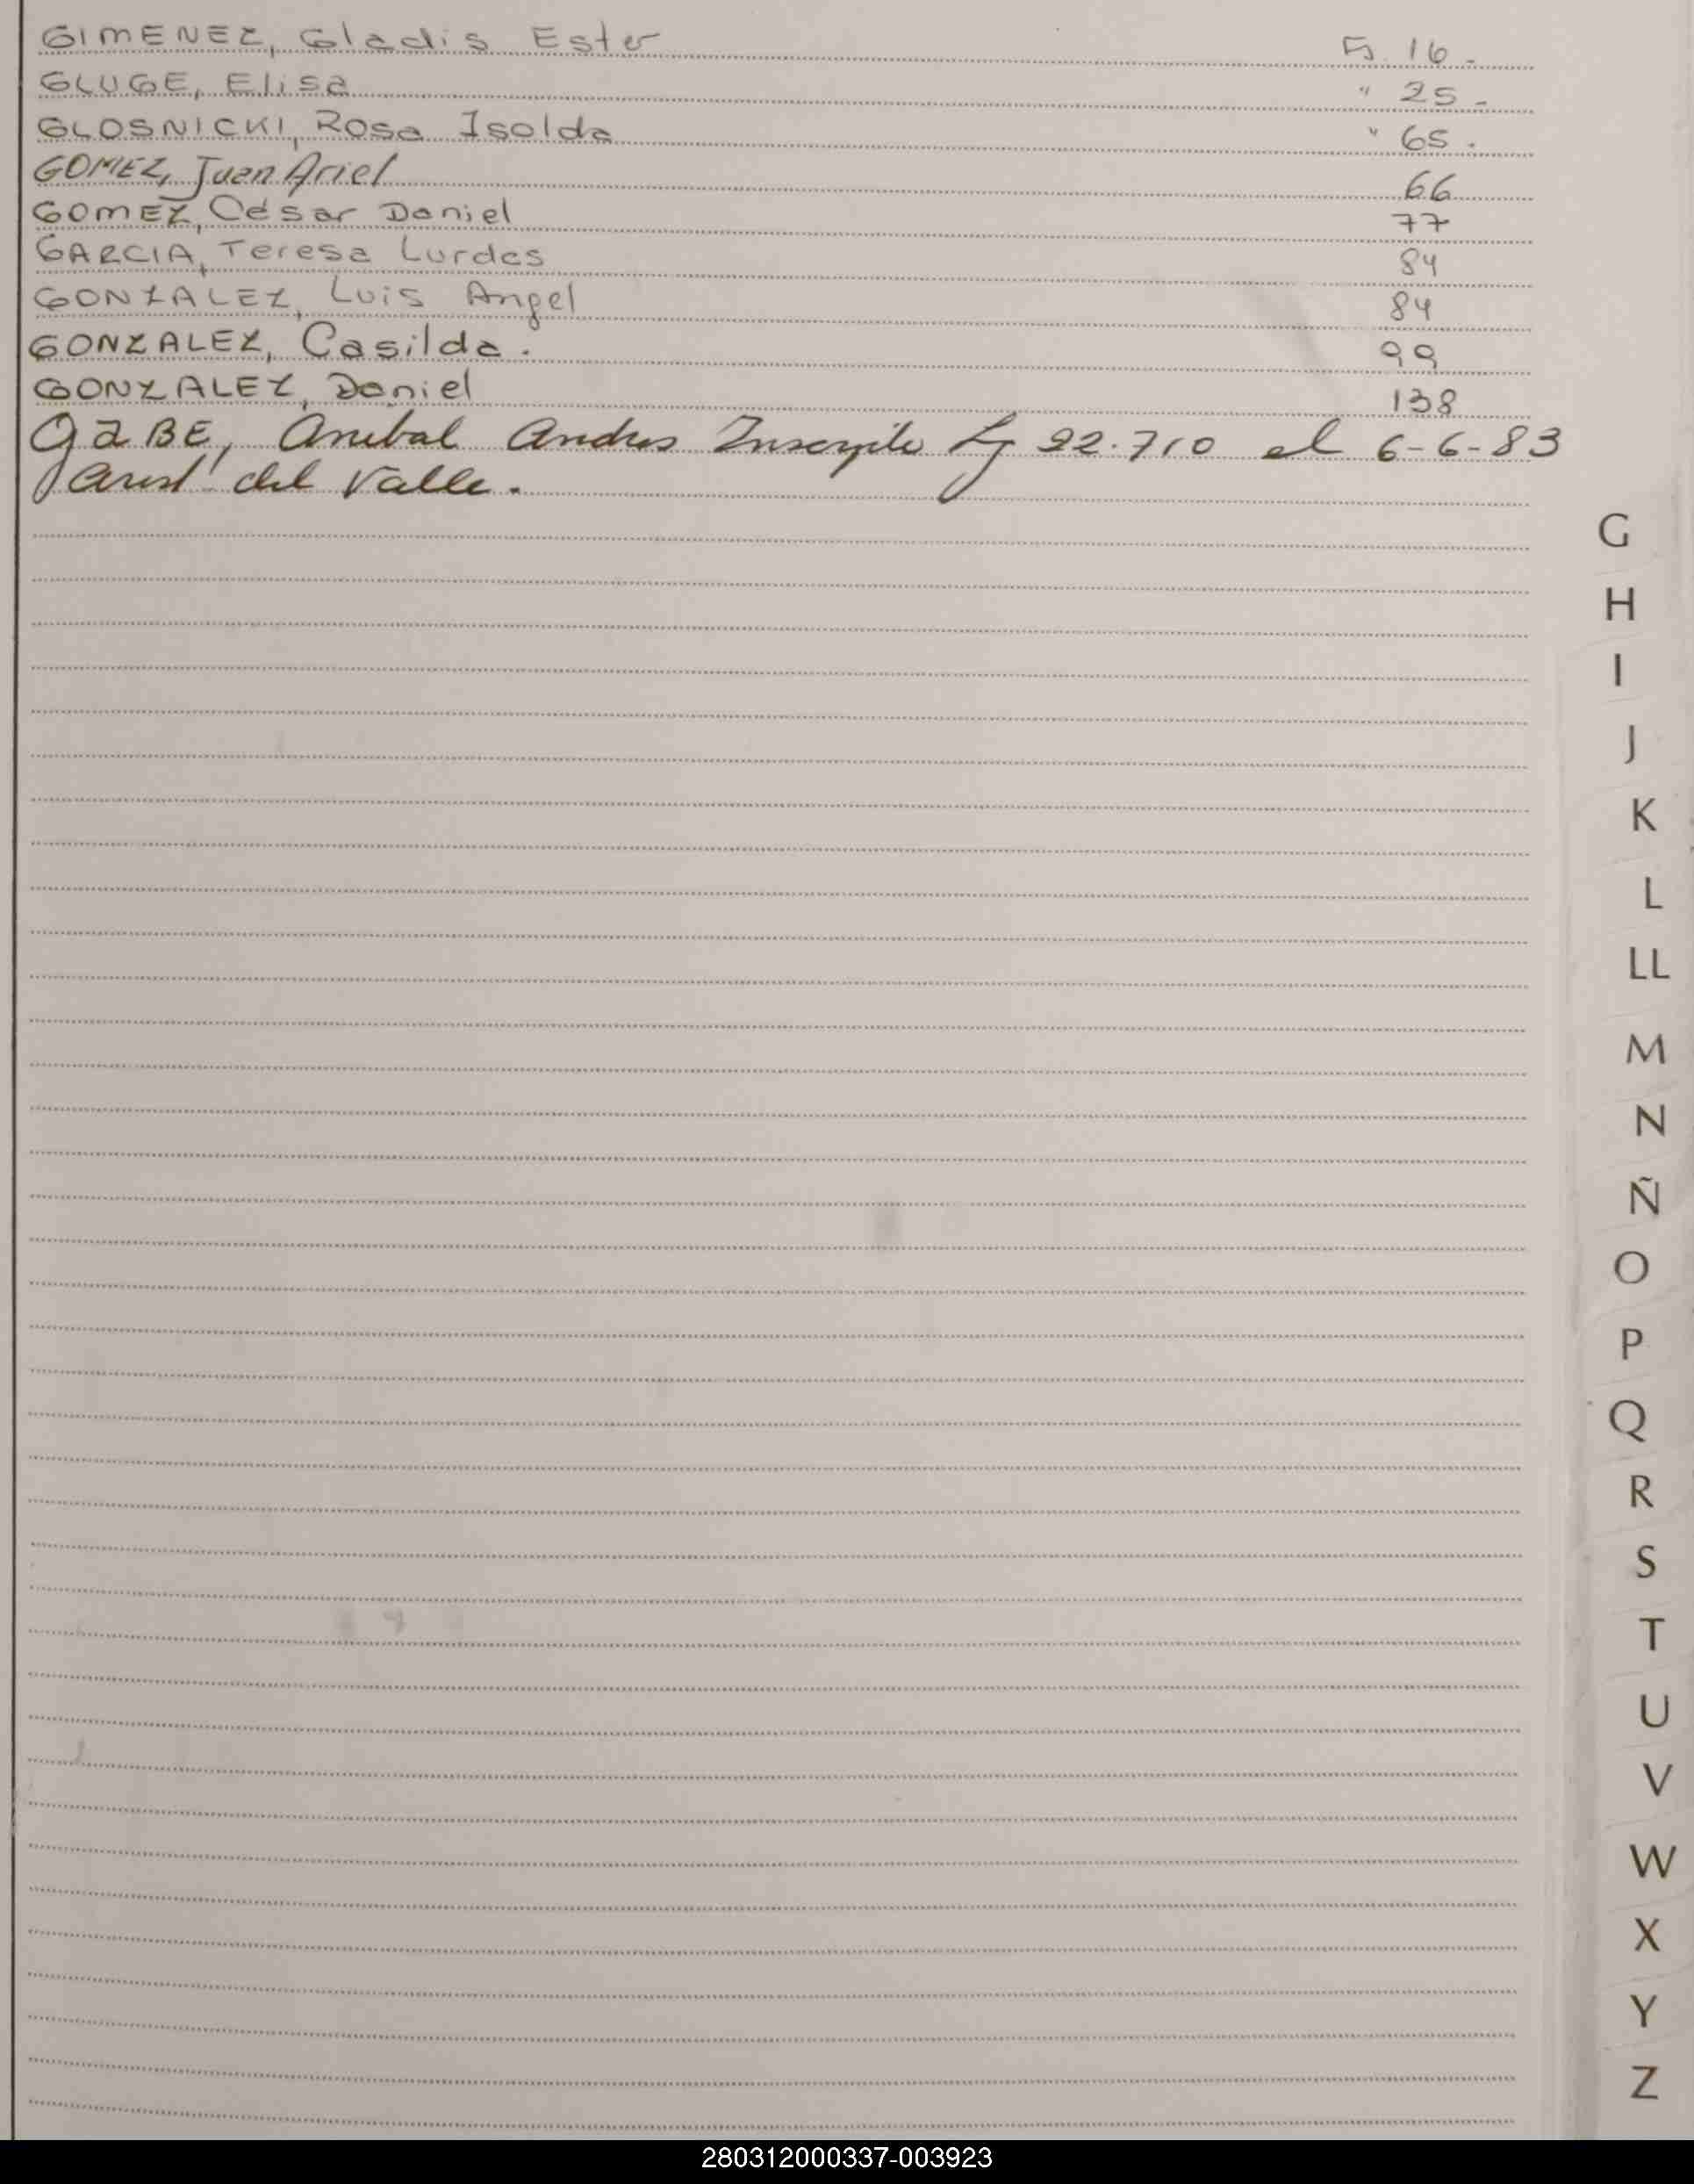 GIMENEZ, Gladis Ester Fj. 16.-
GLUGE, Elisa " 25.-
GLOSNICKI, Rosa Isolda " 65.
GOMEZ, Juan Ariel 66
GOMEZ, César Daniel 77
GARCIA, Teresa Lurdes 84
GONZALEZ, Luis Angel 84
GONZALEZ, Casilda. 99
GONZALEZ, Daniel 138
GaBE, Anibal Andres Inscripto 22.710 el 6-6-83
del Valle.
G
H
I
J
K
L
LL
M
N
Ñ
O
P
Q
R
S
T
U
V
W
X
Y
Z
280312000337-003923